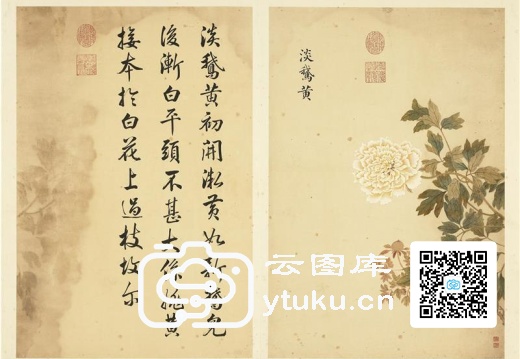 淡鵞黄
淡鵞黄初開微黄如新鵞兒
後漸白平頭不甚大係姚黄
接本於白花上過枝故尔
云图库
ytuku.cn